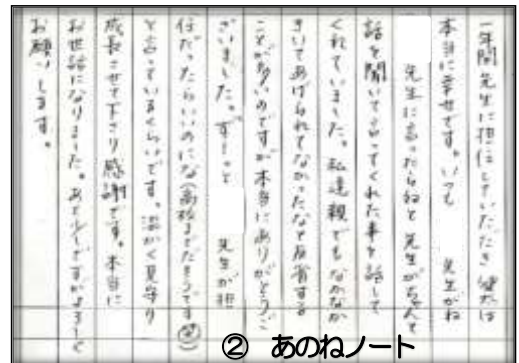 一年間先生に担任していただき健太は
本当に幸せです。いつも　　　先生がね
　　　先生に言ったらねと先生がちゃんと
話を聞いて言ってくれた事を話して
くれていました。私達親でもなかなか
きいてあげられてなかったなと反省する
ことが多いのですが本当にありがとうご
ざいました。ずーっと　　　先生が担
任だったらいいのにな(高校までだそうです(笑))
と言っているくらいです。温かく見守り
成長させて下さり感謝です。本当に
お世話になりました。あと少しですがよろしく
お願いします。
② あのねノート